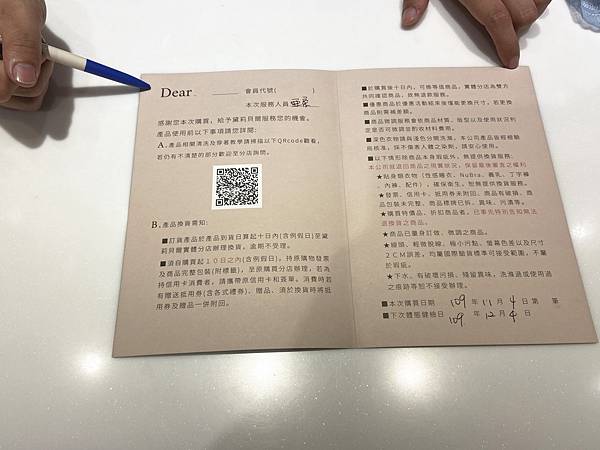 Dear ______ 會員代號(　　)
本次服務人員
感謝您本次購買，給予黛莉貝爾服務您的機會。
產品使用前以下事項請您詳閱:
A.產品相關清洗及穿著教學請掃描以下QRcode觀看，
若仍有不清楚的部分歡迎至分店詢問。
B.產品換貨需知:
■訂貨產品於產品到貨日算起十日內(含例假日)至黛
莉貝爾實體分店辦理換貨，逾期不受理。
■須自購買起10日之內(含例假日)。持原購物發票
及商品完整包裝(附標籤)，至原購買分店辦理。若為
持信用卡消費者，請攜帶原信用卡和簽單。消費時若
有贈送抵用券(含各式禮券)、贈品，須於換貨時將抵
用券及贈品一併附回。
■於購買後十日內，可換等值商品，實體分店為雙方
共同確認商品，故無退款服務。
■優惠商品於優惠活動結束後僅能更換尺寸，若更換
商品則需補差額。
■商品微調服務會依商品材質、版型以及使用狀況判
定是否可微調並酌收材料費用。
■深色衣物請與分開洗滌。本公司產品皆經檢驗
局核准，採不傷害人體之染劑，請安心使用。
■以下情形除商品本身瑕疵外，無提供換貨服務:
本公司就退回商品之現實狀況，保留最後審查之權利
★貼身類衣物(性感睡衣、NuBra、義乳、丁字褲
、內褲、配件)，確保衛生，恕無提供換貨服務。
★發票、信用卡、抵用券未附回、商品有破損、商
品包裝未完整、商品標牌已拆、異味、污漬等。
★購買特價品、折扣商品者。已事先特別告知無法
退換貨之商品。
★商品已量身訂做、微調之商品。
★線頭、輕微脫線、極小污點、螢幕色差以及尺寸
2CM誤差，均屬國際驗貨標準可接受範圍，不屬
於瑕疵。
★下水、有破壞污損、殘留異味、洗滌過或使用過
之痕跡等恕不接受辦理。
■本次購買日期 109 年 11 月 4 日第 筆
■下次體態健檢日 109 年 12 月 4 日